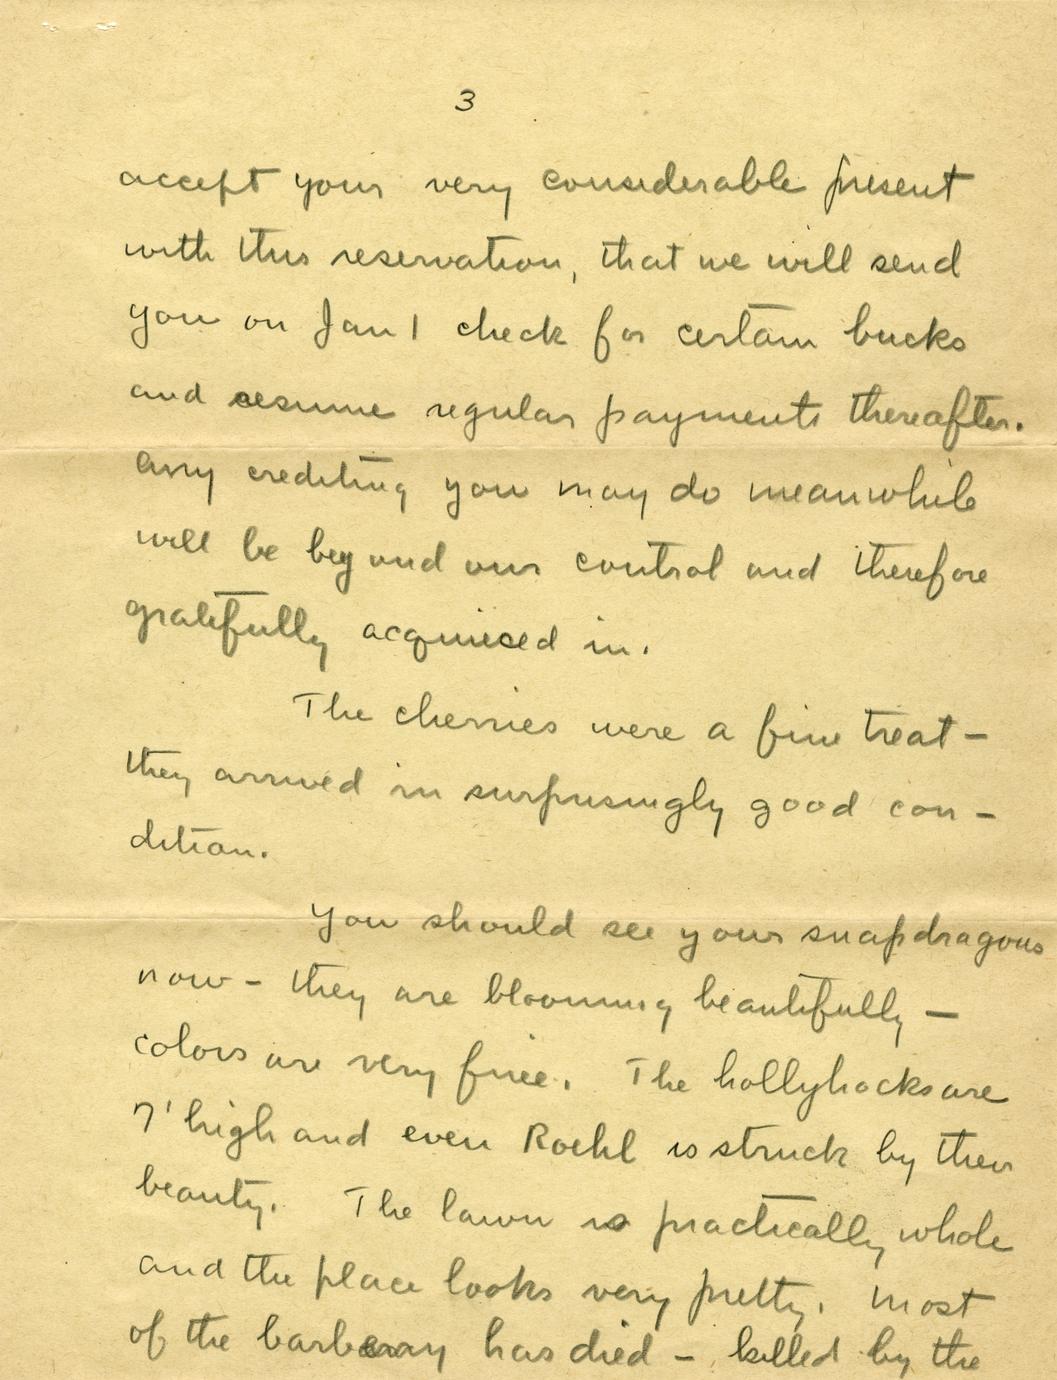 3
accept your very considerable present
with this reservation, that we will send
you on Jan 1 check for certain bucks
and resume regular payments thereafter.
Any crediting you may do meanwhile
will be beyond our control and therefore
gratefully acquiesced in.
The cherries were a fine treat –
they arrived in surprisingly good con –
dition.
You should see your snapdragons
now – they are blooming beautifully –
colors are very fine. The hollyhocks are
7' high and even Roehl is struck by their
beauty. The lawn is practically whole
and the place looks very pretty. Most
of the barberry has died – killed by the